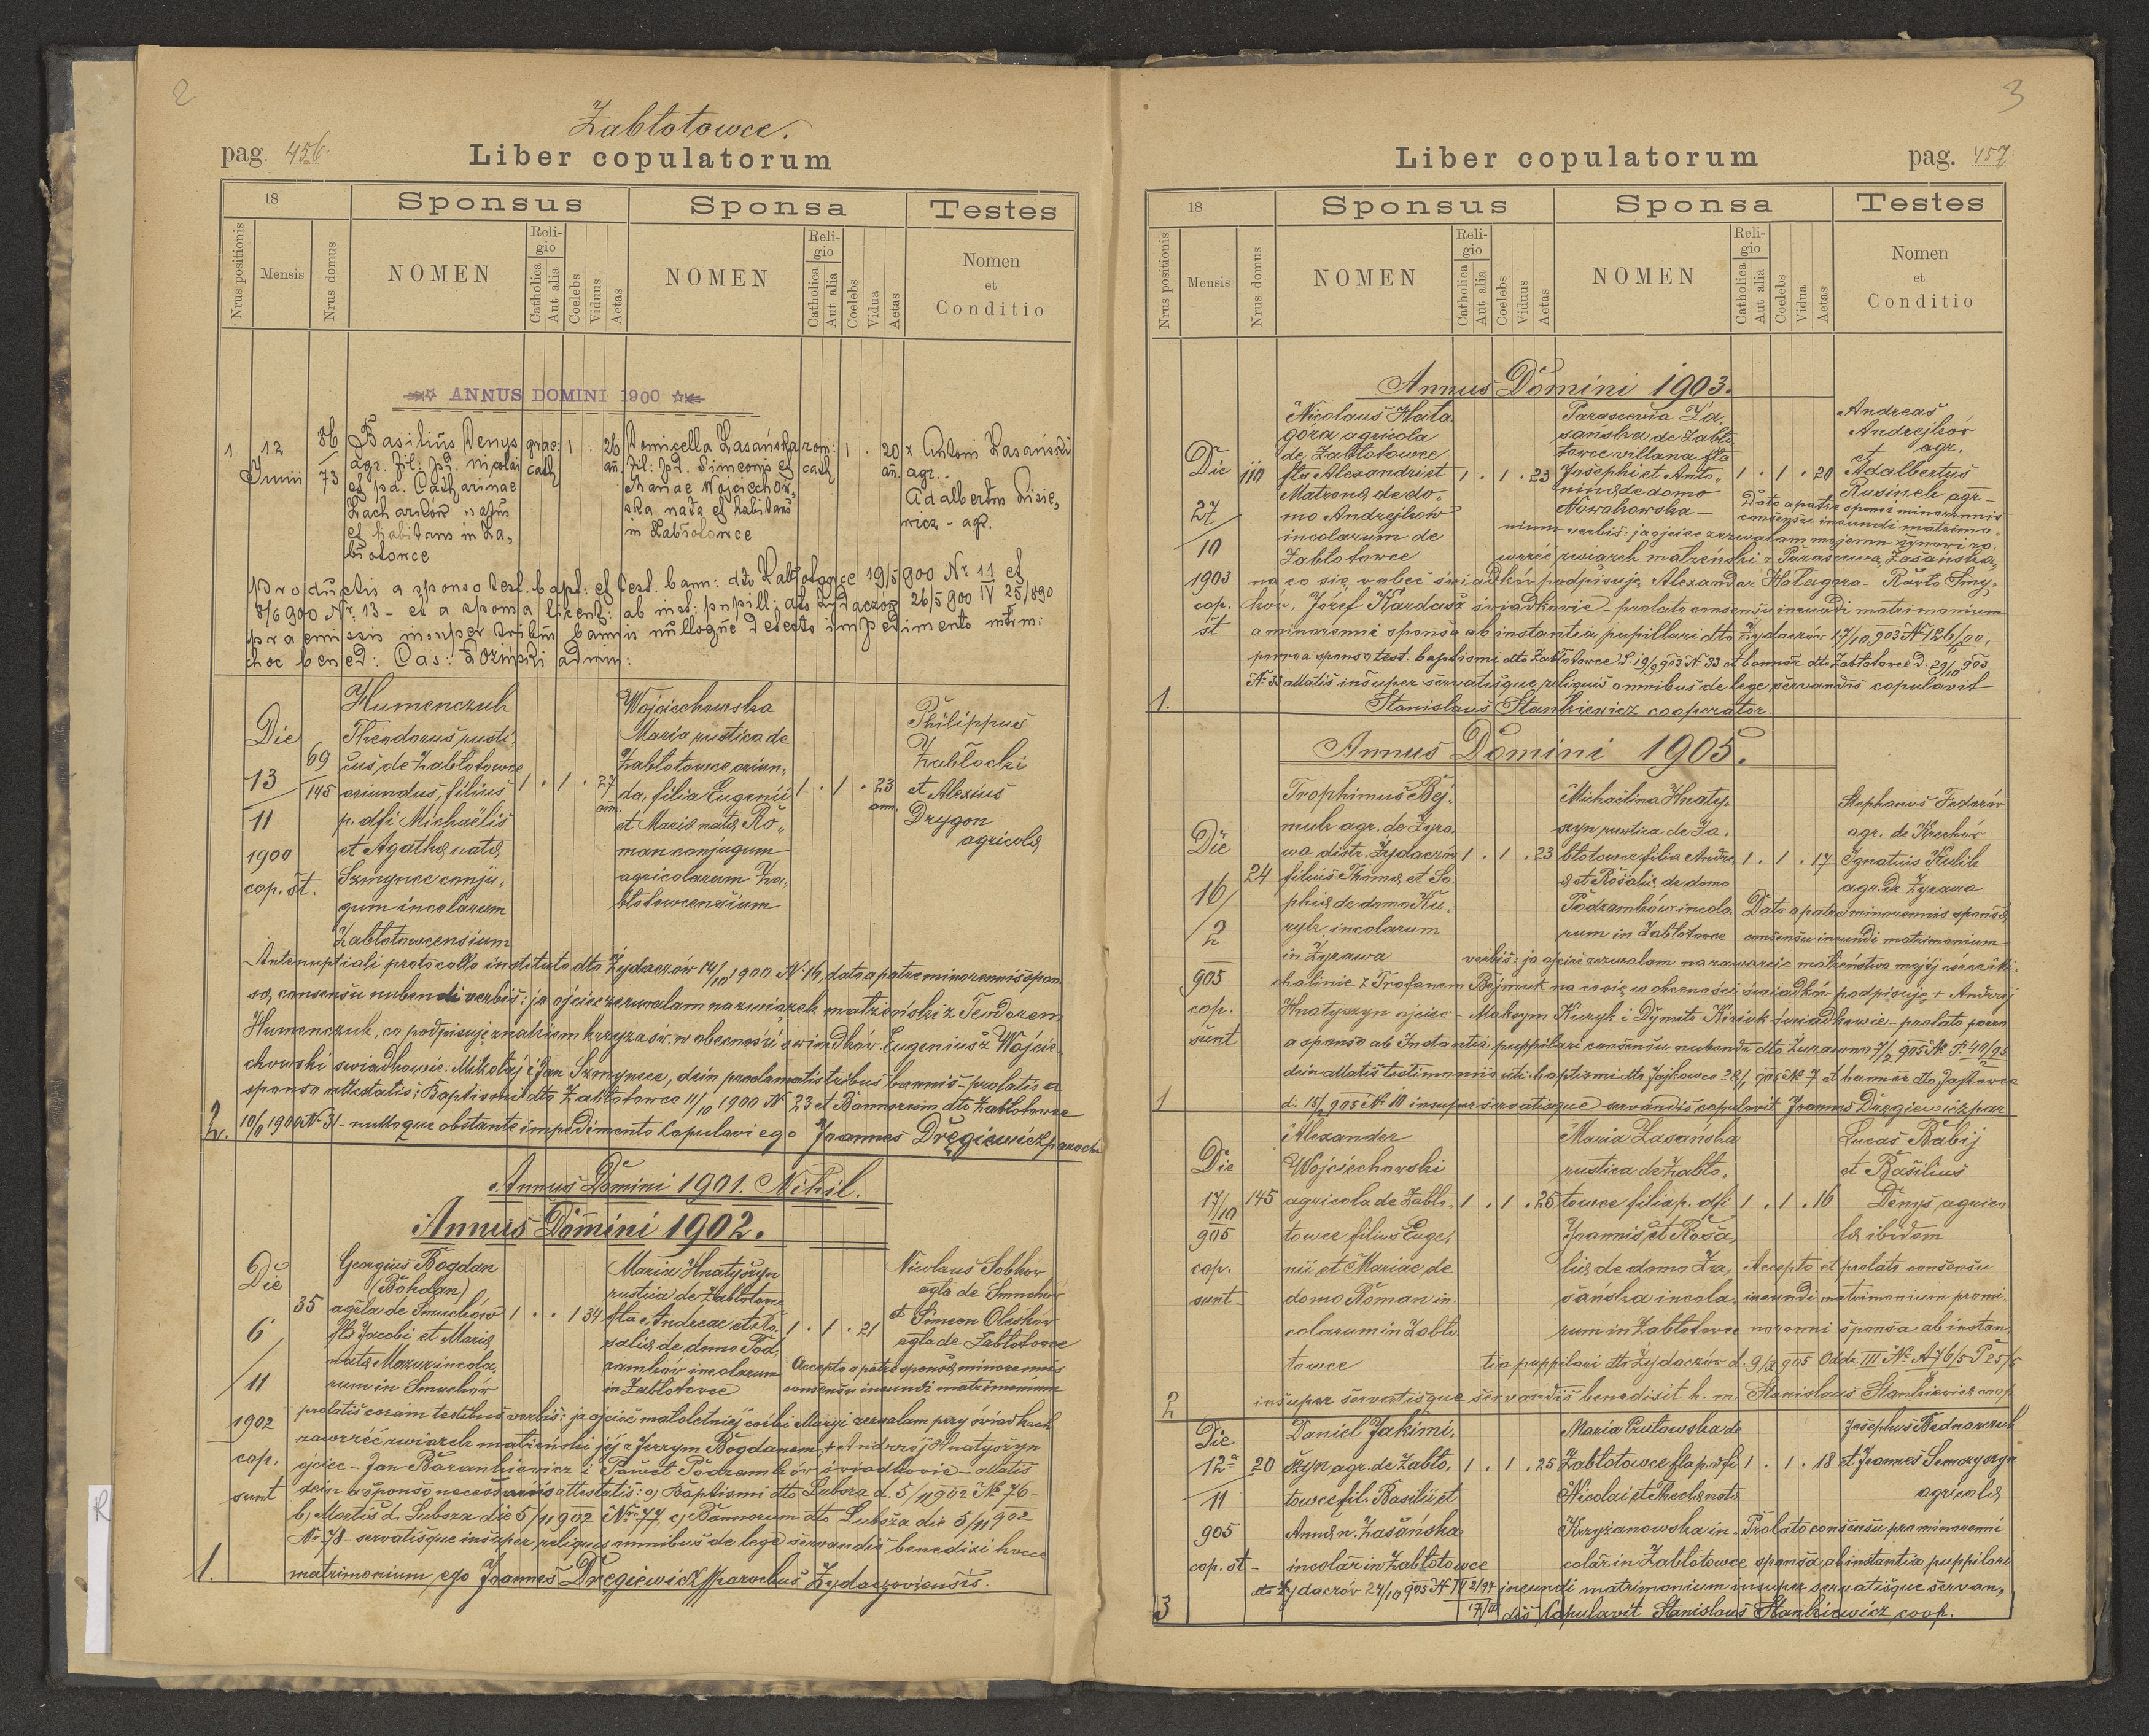 2
Zabłotowce.
pag. 456.
Liber copulatorum
18
Sponsus
Sponsa
Testes
Nrus positionis
Mensis
Nrus domus
NOMEN
Religio
Catholica
Aut alia
Coelebs
Viduus
Aetas
NOMEN
Religio
Catholica
Aut alia
Coelebs
Vidua
Aetas
Nomen
et
Conditio
ANNUS DOMINI 1900
1
12
Junii
86
73
Basilius Denys
agr. fil: pd. Nicolai
et pd. Catharinae
Zacharków
et habitans in Za„
błotowce
graec
cath
1 . 26
añ.
Zasańska
fil: pd. Simeonis et
Mariae Wojciechow„
ska nata et habitans
in Zabłotowce
rom:
cath
1 . 20
añ.
x Antoni Zasański
agr..
Adalbertus
agr.
Productis a sponso test. bapt: et test. bann: dto Zabłotowce 19/5 900 Nr 11 et
8/6 900 Nr. 13 - et a sponsa licent: ab inst: pupill: dto Żydaczów 26/5 900 IV 25/890
praemissis insuper tribus bannis nulloque detecto impedimento mtrm:
hoc bened: Cas: admin:
Die
13
11
1900
cop. st.
69
145
Humenczuk
Theodorus rusti„
cus, de Zabłotowce
oriundus, filius
p. dfi Michaëlis
et Agathæ natæ
Szmynec conju„
gum incolarum
Zabłotowcensium
1 . 1 . 27
ann.
Wojciechowska
Maria rustica de
Zabłotowce oriun„
da, filia Eugenii
et Mariæ natæ Ro„
man conjugum
agricolarum Za„
błotowcensium
1 . 1 . 23
ann.
Philippus
Zabłocki
et Alexius
Drygon
agricolæ
Antenuptiali protocollo instituto dto Żydaczów 14/10 1900 N. 16, dato a patre minorennis spon
sæ, consensu nubendi verbis: ja ojciec zezwalam na związek małżeński z Teodorem
Humenczuk, co podpisuję znakiem krzyża św. w obecności świadków. Eugeniusz Wojcie„
chowski świadkowie: Mikołaj i Jan Szmynec, dein proclamatis tribus bannis - prolatis a
sponso attestatis: Baptismi dto Zabłotowce 11/10 1900 N. 23 et Bannorum dto Zabłotowce
2. 10/11 1900 N. 31 - nulloque obstante impedimento Copulavi ego Joannes Dręgiewicz paroch
Annus Domini 1901. Nihil.
Annus Domini 1902.
Die
6
11
1902
cop.
sunt
35
Georgius Bogdan
(Bohdan)
agla de Smuchów
fls Jacobi et Mariæ
natæ Mazur incola„
rum in Smuchów
1 . . 1 34
Maria Hnatyszyn
rustica de Zabłotowce
fla Andreae et Ro„
saliæ de domo Pod„
zamków incolarum
in Zabłotowce
1 . 1 . 21
Nicolaus Sobkow
agla de Smuchów
et Simeon Oleskow
agla de Zabłotowce
Accepto a patre sponsæ minorennis
consensu ineundi matrimonium
prolatis coram testibus verbis: ja ojciec małoletniej córki Maryi zezwalam przy świadkach
zawrzéć związek małżeński jéj z Jerzym Bogdanem, + Andrzéj Hnatyszyn
ojciec - Jan Barankiewicz i Paweł Podzamków świadkowie - allatis
dein a sponso necessariis attestatis: a) Baptismi dto Lubsza d. 5/11 902 No 76-
b) Mortis d. Lubsza die 5/11 902 Nro 77 c) Bannorum dto Lubsza die 5/11 902
No 78 - servatisque insuper reliquis omnibus de lege servandis benedixi hocce
1. matrimonium ego Joannes Dręgiewicz parochus Żydaczoviensis.
R
3
Liber copulatorum
pag. 457.
18
Sponsus
Sponsa
Testes
Nrus positionis
Mensis
Nrus domus
NOMEN
Religio
Catholica
Aut alia
Coelebs
Viduus
Aetas
NOMEN
Religio
Catholica
Aut alia
Coelebs
Vidua
Aetas
Nomen
et
Conditio
Annus Domini 1903.
Die
27
10
1903
cop.
st
110
Nicolaus Hoła„
góra agricola
de Zabłotowce
fls Alexandri et
Matronæ de do„
mo Andrejków
incolarum de
Zabłotowce
1 . 1 . 23
Parascevia Za„
sańska de Zabło„
towce villana fla
Josephi et Anto„
ninæ de domo
Nowakowska -
1 . 1 . 20
Andreas
Andrejków
agr.
et
Adalbertus
Rusinek agr-
Dato a patre sponsi minorennis
consensu ineundi matrimo„
nium verbis: ja ojciec zezwalam mojemu synowi za„
wrzéć związek małżeński z Parascewią Zasańską,
na co się wobec świadków podpisuję Alexander Hołagóra - Pawło Smy„
Józef Kardasz świadkowie - prolato consensu ineundi matrimonium
a minorenni sponsa ab instantia pupillari dto Żydaczów 17/10 903 N 126/00,
porro a sponso test: baptismi dto Zabłotowce d. 19/9 903 N. 33 et bannor dto Zabłotowce d. 29/10 903
N. 33 allatis insuper servatisque reliquis omnibus de lege servandis copulavit
1. Stanislaus Stankiewicz cooperator.
Annus Domini 1905.
Die
16
2
905
cop.
sunt
24
Trophimus Bej„
muk agr. de Żyra„
wa distr. Żydaczów
filius Thomæ et So„
phiæ de domo Ku„
ryk, incolarum
in Żyrawa
1 . 1 . 23
Michaëlina Hnaty„
szyn rustica de Za„
błotowce filia Andre„
æ et Rosaliæ de domo
Podzamków incola„
rum in Zabłotowce
1 . 1 . 17
Stephanus Fedorów
agr. de Krechów
Ignatius Kulik
agr. de Żyrawa
Dato a patre minorennis sponsæ
consensu ineundi matrimonium
verbis: ja ojciec zezwalam na zawarcie małżeństwa mojéj córce Mi„
chalinie z Trofanem Bejmuk na co się w obecności świadków podpisuję + Andrzéj
Hnatyszyn ojciec - Maksym Kuryk i Dymitr Kiziuk świadkowie - prolato porro
a sponso ab Instantia puppilari consensu nubendi dto Żurawno 7/2 905 No P. 40/95
dein allatis testimoniis uti: baptismi dto Jajkowce 28/1 905 No 7 et bannor dto Jajkowce
1 d. 15/2 905 No 10 insuper servatisque servandis copulavit Joannes Dręgiewicz par
Die
17/10
905
cop.
sunt -
145
Alexander
Wojciechowski
agricola de Zabło„
towce filius Euge„
nii et Mariae de
domo Roman in„
colarum in Zabło„
towce
1 . 1 . 25
Maria Zasańska
rustica de Zabło„
towce filia p. dfi
Joannis et Rosa„
liæ de domo Za„
sańska incola„
rum in Zabłotowce
1 . 1 . 16
Lucas Babij
et Basilius
Denys agrico
læ ibidem
Accepto et prolato consensu
ineundi matrimonium pro mi„
norenni sponsa ab instan„
tia puppilari dto Żydaczów d. 9/8 905 Oddz. III No A 76/5 P 25/5
2 insuper servatisque servandis benedixit h. m. Stanislaus Stankiewicz coop
Die
12a
11
905
cop. st -
20
Daniel Jakimi„
szyn agr. de Zabło„
towce fil. Basilii et
Annæ n. Zasańska
incolar in Zabłotowce
1 . 1 . 25
Maria Czułowska de
Zabłotowce fla p. dfi
Nicolai et Theclæ nata
Krzyżanowska in„
colar in Zabłotowce
1 . 1 . 18
Josephus Bednarczuk
et Joannes Semczyszyn
agricolæ
Prolato consensu pro minorenni
sponsa ab instantia puppilari
dto Żydaczów 24/10 905 N IV 2/97 ineundi matrimonium insuper servatisque servan„
3 17/00 dis Copulavit Stanislaus Stankiewicz coop.